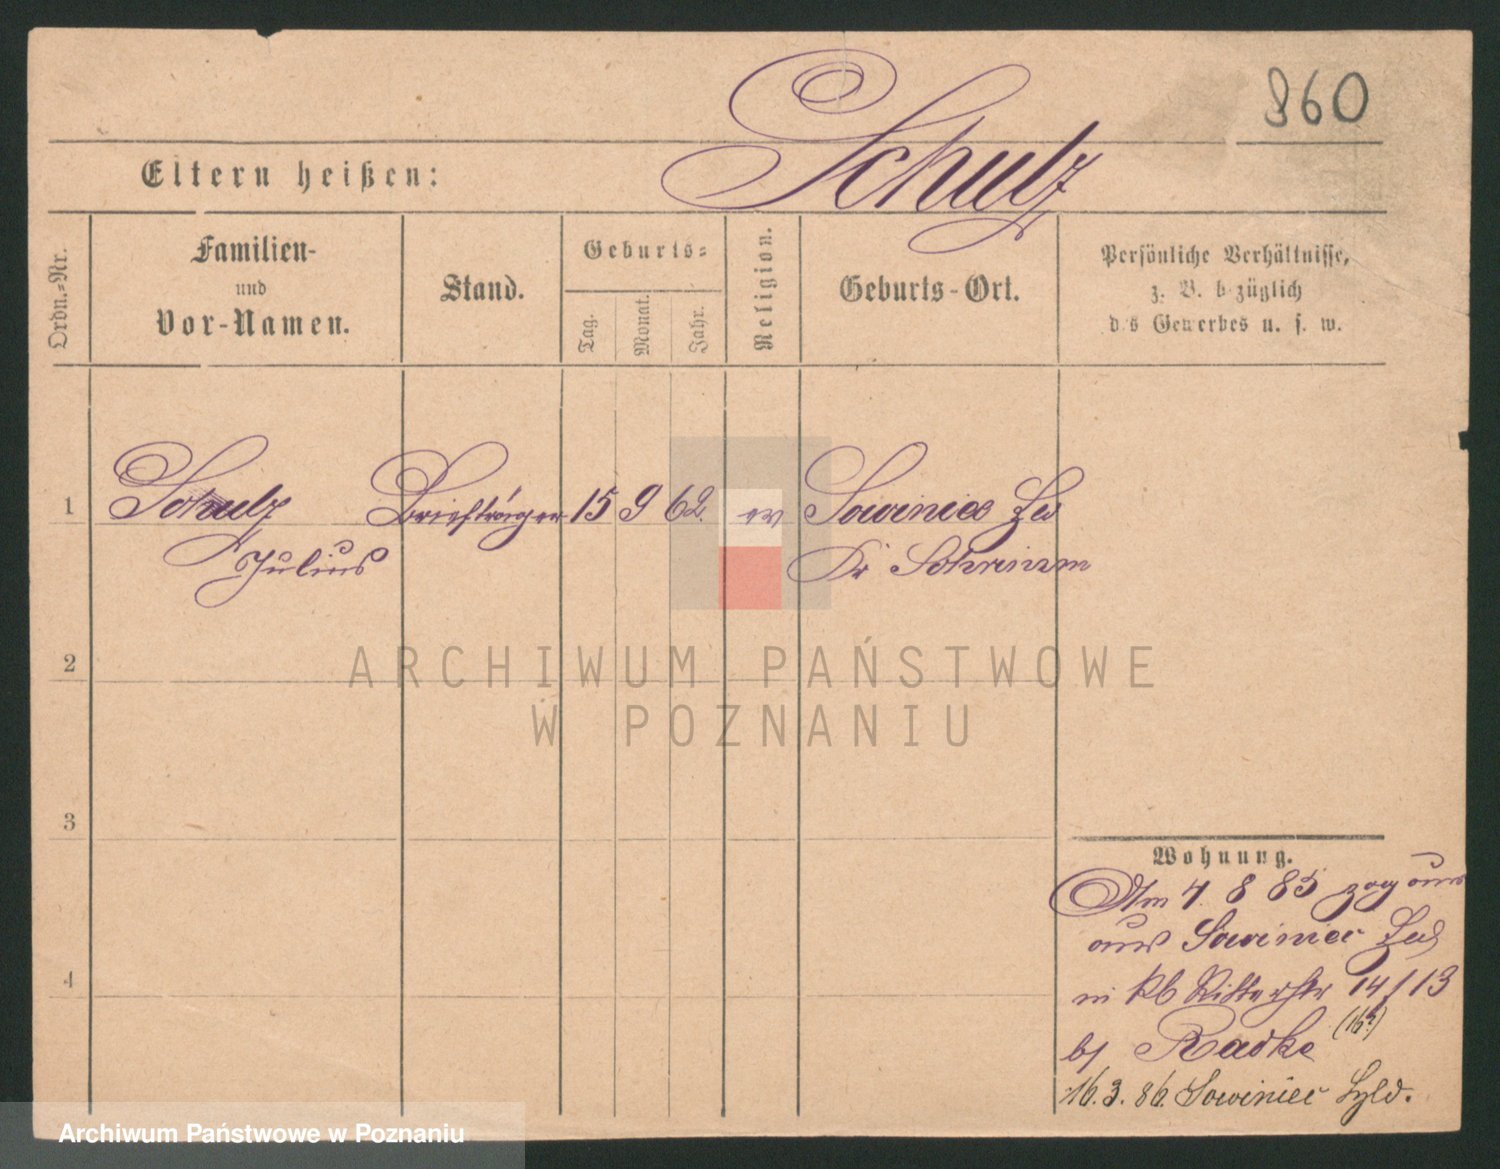 860
Schulz
Eltern heißen:
Ordn.-Nr.
Familien-
und
Vor-Namen.
Stand.
Geburts-
Tag.
Monat.
Jahr.
Religion.
Geburts-Ort.
Persönliche Verhältnisse,
z. B. bezüglich
des Gewerbes u. s. w.
1
Schulz
Julius
Briefträger
15 9 62.
ev
Sowiniec
Kr Schrimm
2
3
4
Wohnung.
Am 4. 8 85 zog
aus Sowiniec
in Ritterstr 14/13
(16?)
b/ Radke
16.3.86. Sowiniec
ARCHIWUM PAŃSTWOWE
W POZNANIU
Archiwum Państwowe w Poznaniu